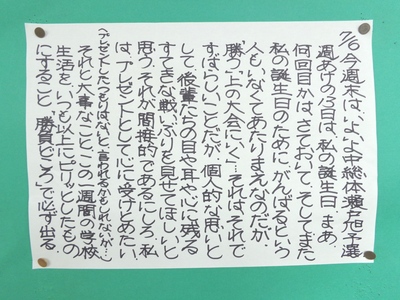 7/6 今週末は、いよいよ中総体瀬戸旭予選
週あけの13日は、私の誕生日。まあ、
何回目かは、さておいて…そしてまた
私の誕生日のために、がんばるという
人もいなくてあたりまえなのだが、
「勝つ」「上の大会にいく」…それはそれで
すばらしいことだが、個人的な思いと
して、後輩たちの目や耳や心に残る
すてきな戦いぶりを見せてほしいと
思う。それが間接的であるにしろ、私
は、プレゼントとして心に受けとめたい。
(プレゼントしたつもりはない、と言われるかもしれないが…)
それと大事なこと、この一週間の学校
生活をいつも以上にピリッとしたもの
にすること。「勝負どころ」で必ず出る。